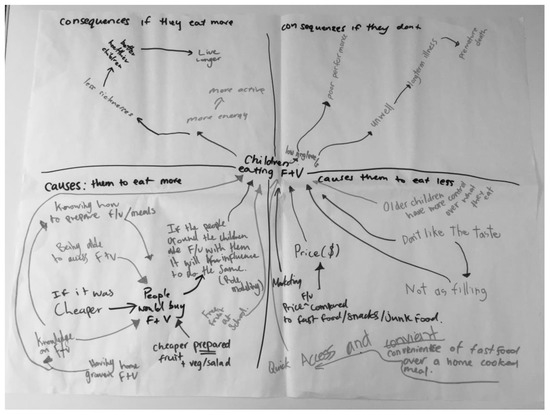 consequences if they eat more
better
healthier
children
Live
Longer
less sicknesses
more active
more energy
consequences if they don't
poor performance
unwell
longterm illness
premature
death
Children
eating F+V
causes: them to eat more
Knowing how
to prepare f/v/meals
Being able
to access F+V
If it was
Cheaper
Knowledge
on F+V
Having home
grown F+V
People
would buy
F+V
If the people
around the children
ate F/V with them
it will influence
to do the same.
(Role
modelling)
Free
fruit
at
School
cheaper prepared
fruit + veg/salad
causes them to eat less
Older children
have more control
over what
they
eat
Don't like The taste
Not as filling
Price ($)
Marketing
F/V
Price ^ compared
to fast food/snacks/Junk Food.
Quick Access and convient
convenience of fast food
over a home cooked
meal.